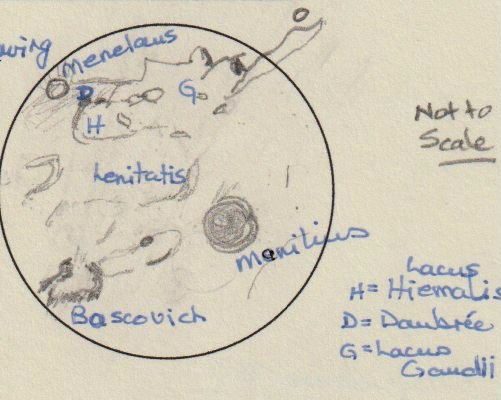 Menelaus
D
G
H
Lenitatis
Manilius
Bascovich
Not to
Scale
Lacus
H= Hiemalis
D= Daubrée
G= Lacus
Gaudii